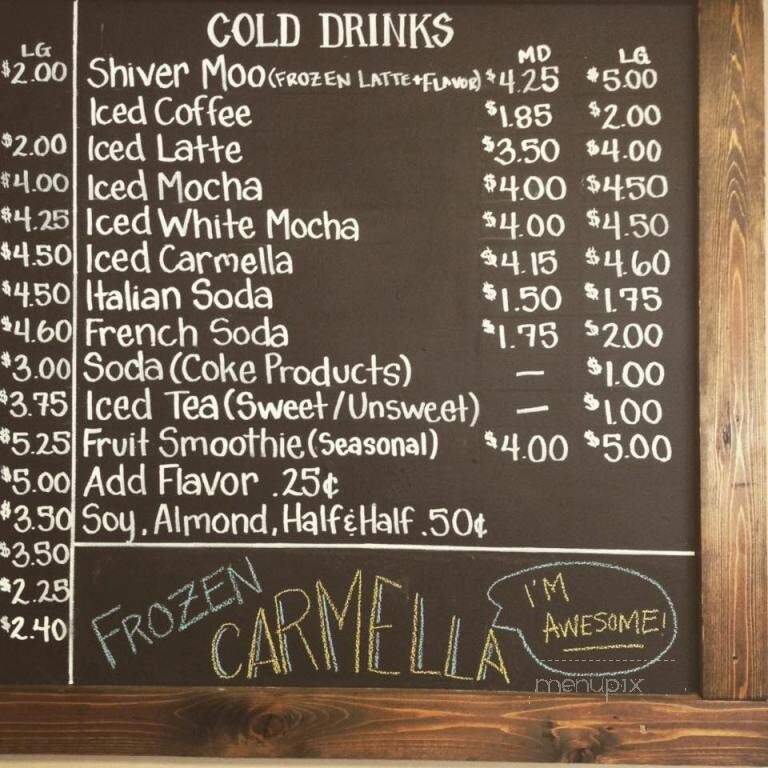 LG
$2.00
$2.00
$4.00
$4.25
$4.50
$4.50
$4.60
$3.00
$3.75
$5.25
$5.00
$3.50
$3.50
$2.25
$2.40
COLD DRINKS
MD LG
Shiver Moo (FROZEN LATTE+FLAVOR) $4.25 $5.00
Iced Coffee $1.85 $2.00
Iced Latte $3.50 $4.00
Iced Mocha $4.00 $4.50
Iced White Mocha $4.00 $4.50
Iced Carmella $4.15 $4.60
Italian Soda $1.50 $1.75
French Soda $1.75 $2.00
Soda (Coke Products) — $1.00
Iced Tea (Sweet/Unsweet) — $1.00
Fruit Smoothie (Seasonal) $4.00 $5.00
Add Flavor .25¢
Soy, Almond, Half & Half .50¢
FROZEN
CARMELLA
I'M
AWESOME!
menupix